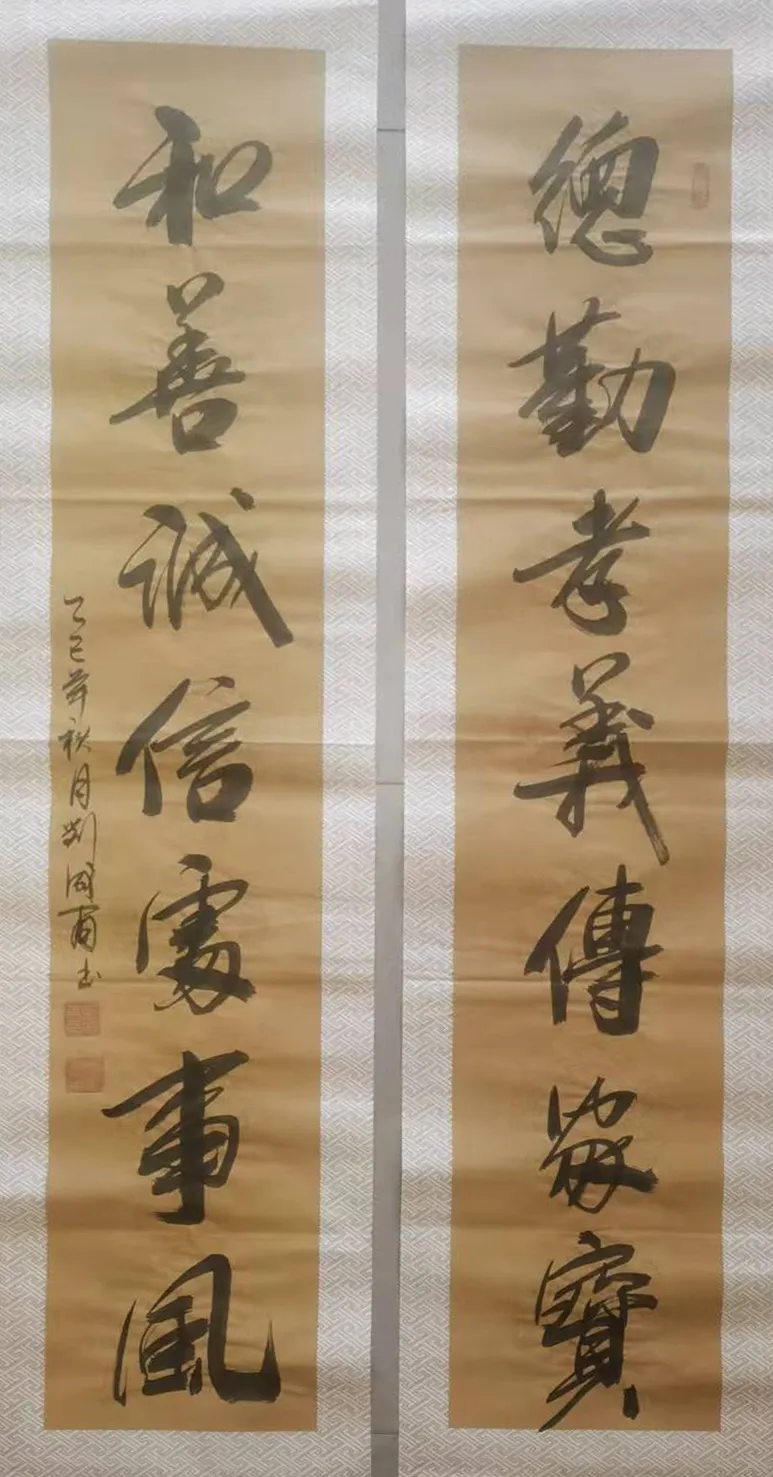 總勤孝義傳家寶
和善誠信處事風
乙巳年秋月劉國書